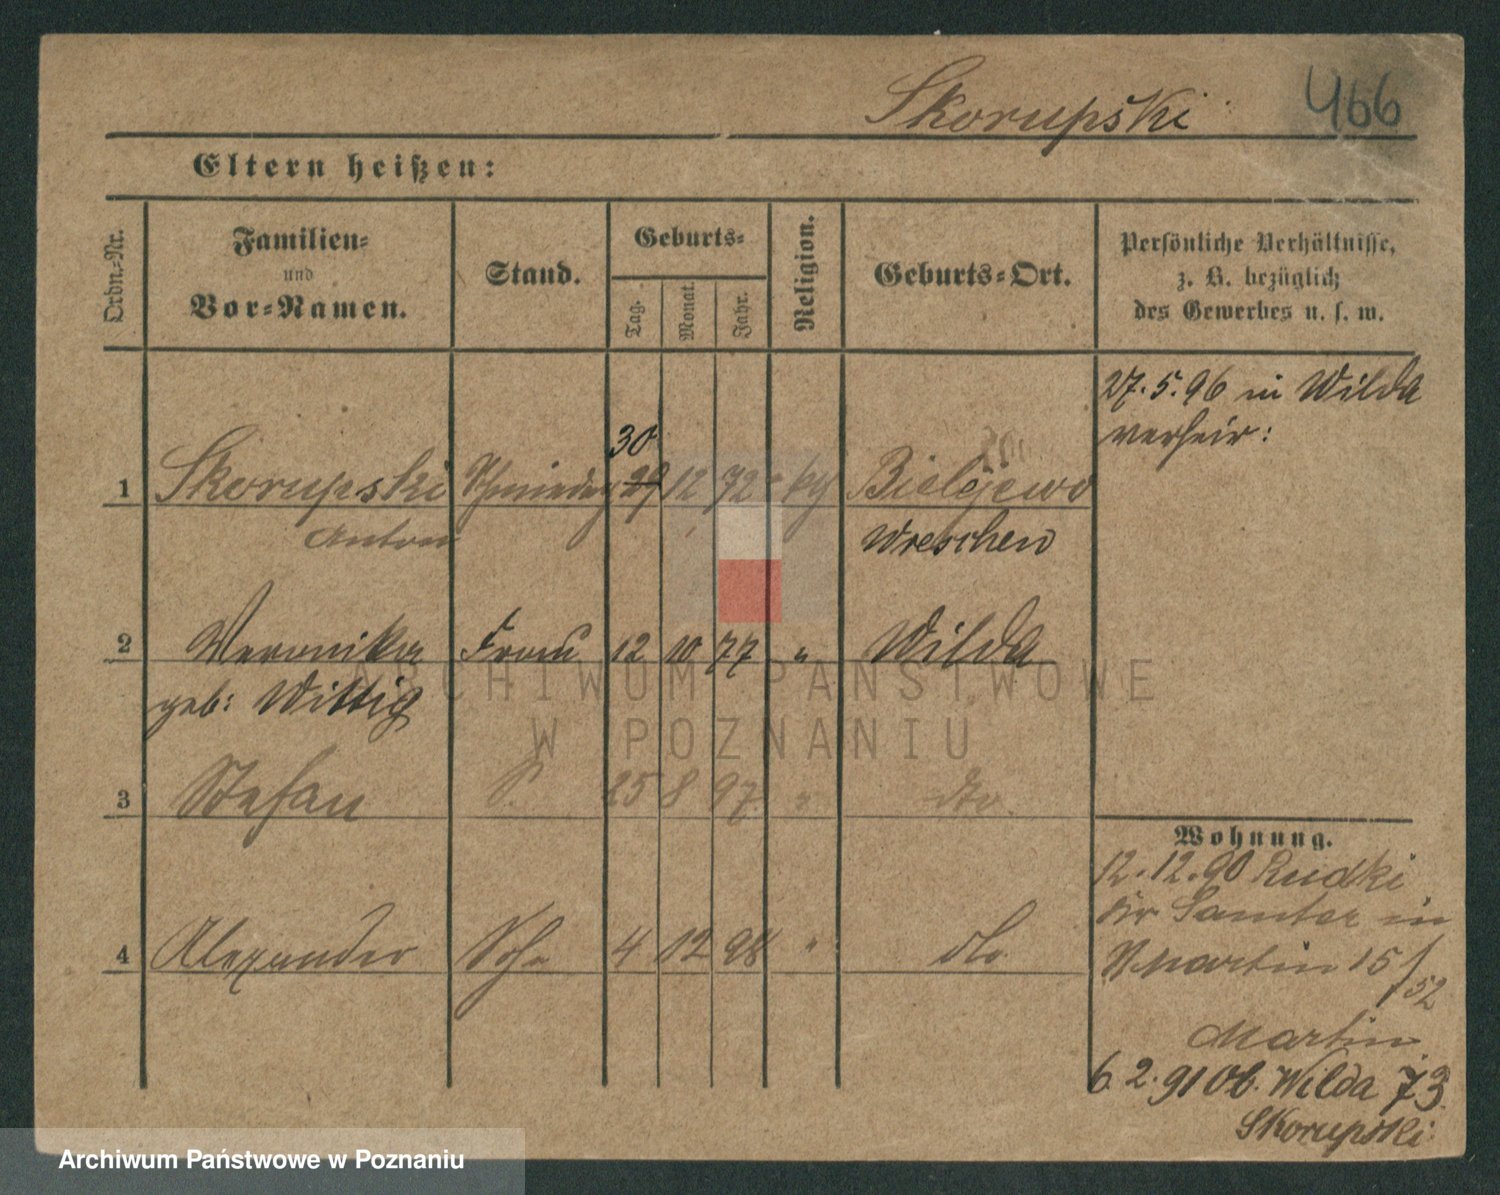 Skorupski 466
Eltern heißen:
Ordn.-Nr.
Familien-
und
Vor-Namen.
Stand.
Geburts-
Tag.
Monat.
Jahr.
Religion.
Geburts-Ort.
Persönliche Verhältnisse,
z. B. bezüglich
des Gewerbes u. s. w.
27. 5. 96 in Wilda
verheir:
30
1 Skorupski 29 12 72 kg Bielejewo
Anton Wreschen
2 Veronika Frau 12 10 77 " Wilda
geb: Wittig
ARCHIWUM PAŃSTWOWE
W POZNANIU
3 Stefan S. 25 8 97 " dto.
Wohnung.
12. 12. 90 Rudki
Kr Samter in
4 Alexander Sohn 4 12 98 " dto.
Martin 15/52
Martin
6. 2. 91 Ob. Wilda 73.
Skorupski
Archiwum Państwowe w Poznaniu